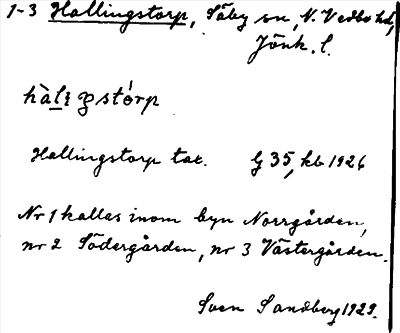 1-3 Hallingstorp, Säby sn, N. Vedbo hd,
Jönk. l.
Hallingstorp tax. G 35, kb 1926
Nr 1 kallas inom byn Norrgården,
nr 2 Södergården, nr 3 Västergården.
Sven Sandberg 1929.